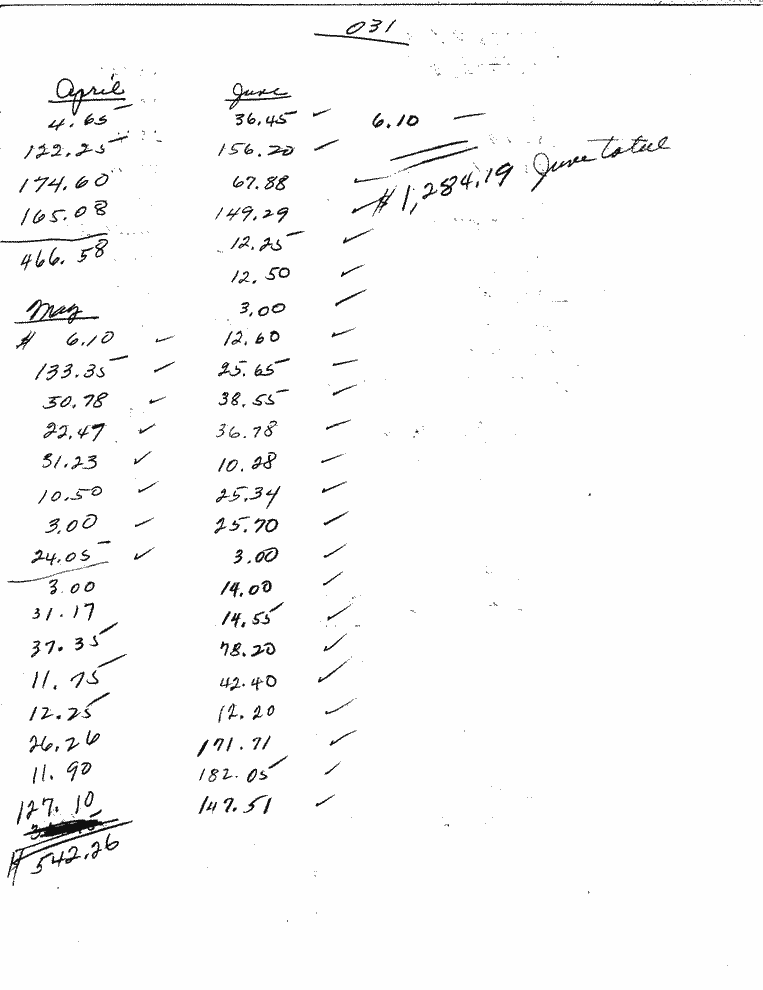 031
April
4.65
122.25
174.60
165.08
466.58
May
$ 6.10 ✓
133.35 ✓
50.78 ✓
22.47 ✓
31.23 ✓
10.50 ✓
3.00 ✓
24.05 ✓
3.00
31.17
37.35
11.75
12.25
26.26
11.90
127.10
$ 542.26
June
36.45 ✓
156.20 ✓
67.88 ✓
149.29 ✓
12.25 ✓
12.50 ✓
3.00 ✓
12.60 ✓
25.65 ✓
38.55 ✓
36.78 ✓
10.28 ✓
25.34 ✓
25.70 ✓
3.00 ✓
14.00 ✓
14.55 ✓
78.20 ✓
42.40 ✓
12.20 ✓
171.71 ✓
182.05 ✓
147.51 ✓
6.10 —
$1,284.19 June total